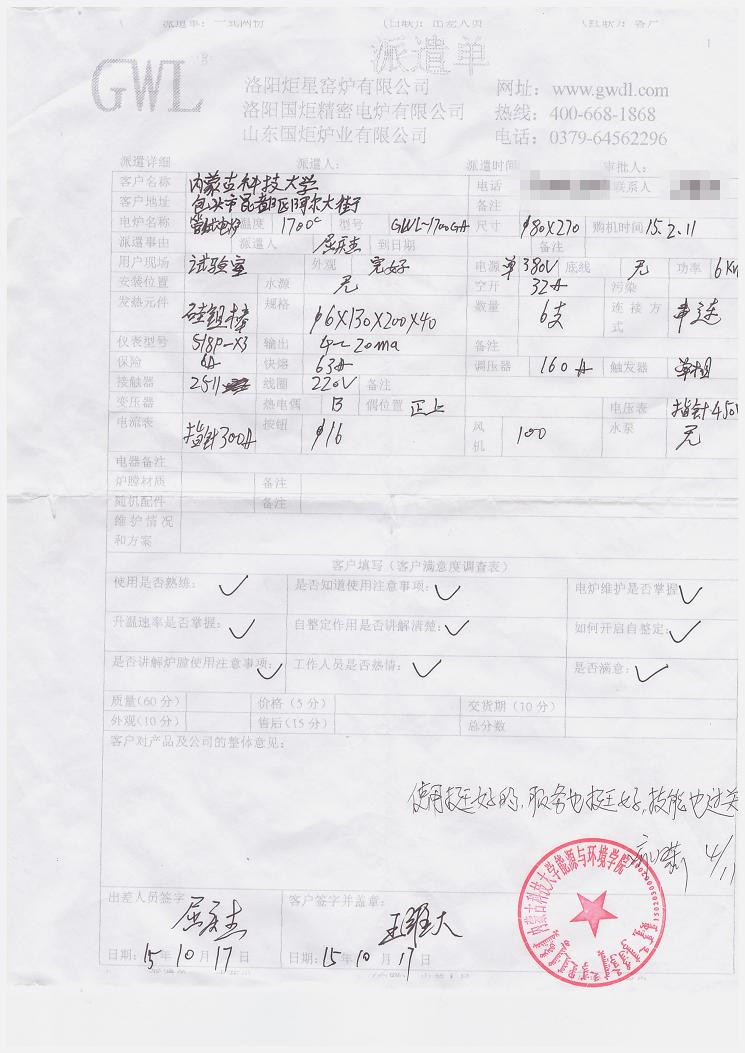 派遣单：一式两份 （白联）：出差人员 （红联）：客户
派遣单
GWL
洛阳炬星窑炉有限公司 网址：www.gwdl.com
洛阳国炬精密电炉有限公司 热线：400-668-1868
山东国炬炉业有限公司 电话：0379-64562296
派遣详细 派遣人： 派遣时间 审批人：
客户名称 内蒙古科技大学 电话 联系人
客户地址 包头市昆都区阿尔大街 备注
电炉名称 管式电炉 温度 1700℃ 型号 GWL-1700GA 尺寸 φ80X270 购机时间 15.2.11
派遣事由 派遣人 屈庆杰 到日期 备注
用户现场 试验室 外观 完好 电源 单380V 底线 无 功率 6KW
安装位置 水源 无 空开 32A 污染
发热元件 硅钼棒 规格 φ6X130X200X40 数量 6支 连接方式 串连
仪表型号 518P-X3 输出 4~20ma 备注
保险 快熔 63A 调压器 160A 触发器 单相
接触器 2511 线圈 220V 备注
变压器 热电偶 B 偶位置 正上 电压表 指针450V
电流表 指针300A 按钮 φ16 风机 100 水泵 无
电器备注
炉膛材质 备注
随机配件 备注
维护情况和方案
客户填写（客户满意度调查表）
使用是否熟练： ✓ 是否知道使用注意事项： ✓ 电炉维护是否掌握 ✓
升温速率是否掌握： ✓ 自整定作用是否讲解清楚： ✓ 如何开启自整定： ✓
是否讲解炉膛使用注意事项： ✓ 工作人员是否热情： ✓ 是否满意： ✓
质量(60分) 价格（5分） 交货期（10分）
外观(10分) 售后(15分) 总分数
客户对产品及公司的整体意见：
使用挺好的，服务也挺好，技能也过关
内蒙古科技大学能源与环境学院
出差人员签字 屈庆杰 客户签字并盖章：
日期：15年10月17日 日期：15年10月17日